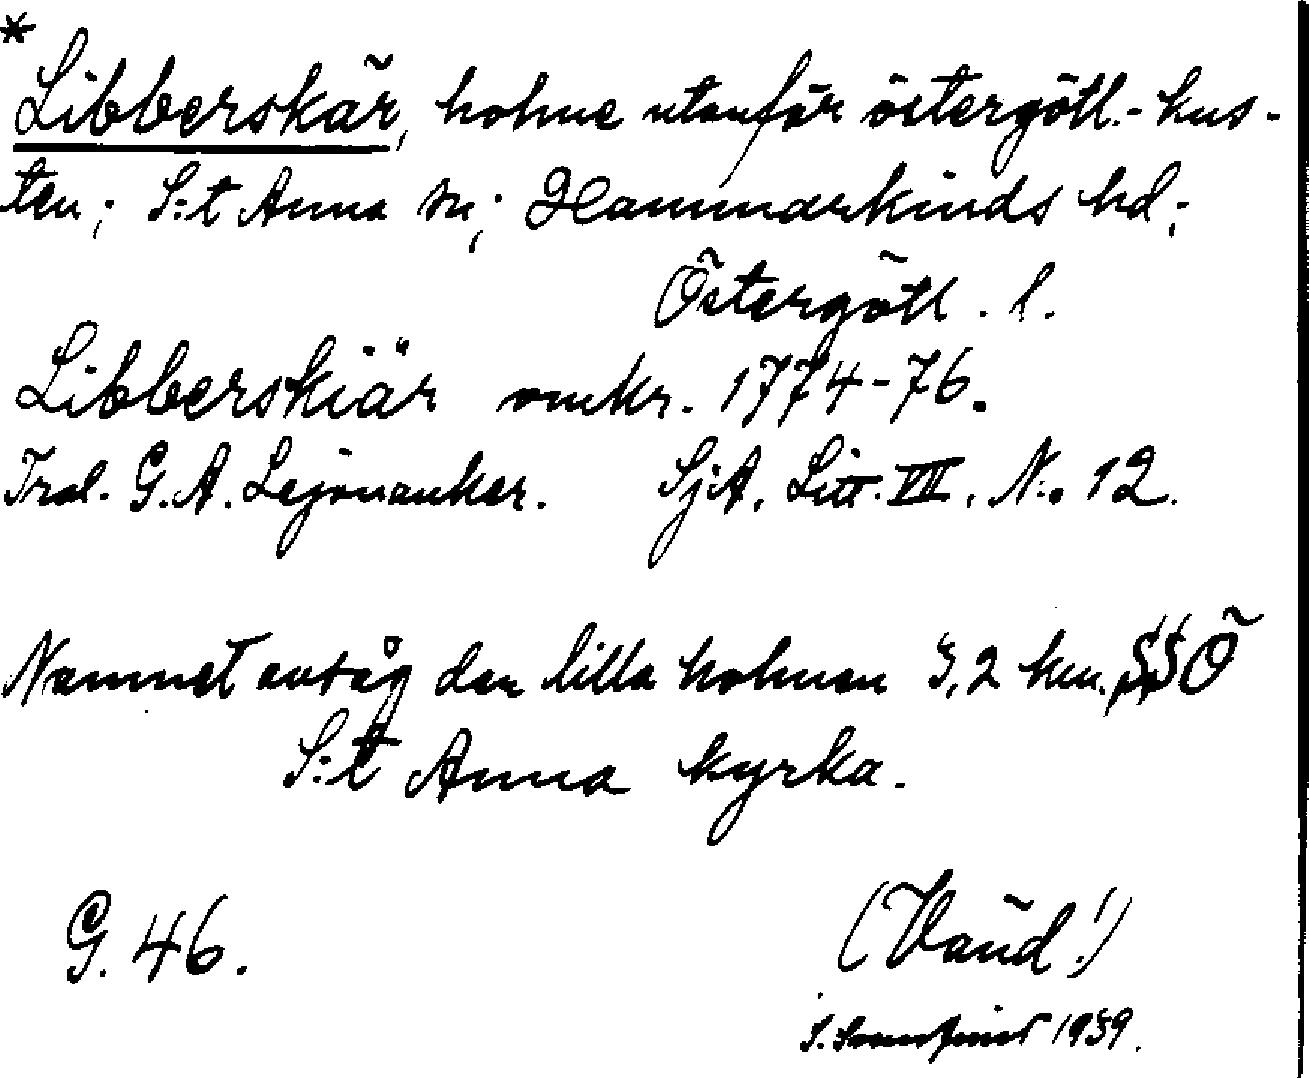 *
Libberskär, holme utanför östergötl.-kus-
ten; S:t Anna sn; Hammarkinds hd;
Östergötl. l.
Libberskiär omkr. 1774-76.
Trol. G. A. Lejonanker. SjA. Litt. VII. N:o 12.
Namnet avsåg den lilla holmen 3,2 km. SSÖ
S:t Anna kyrka.
G. 46.
(Vänd!)
S. 1939.